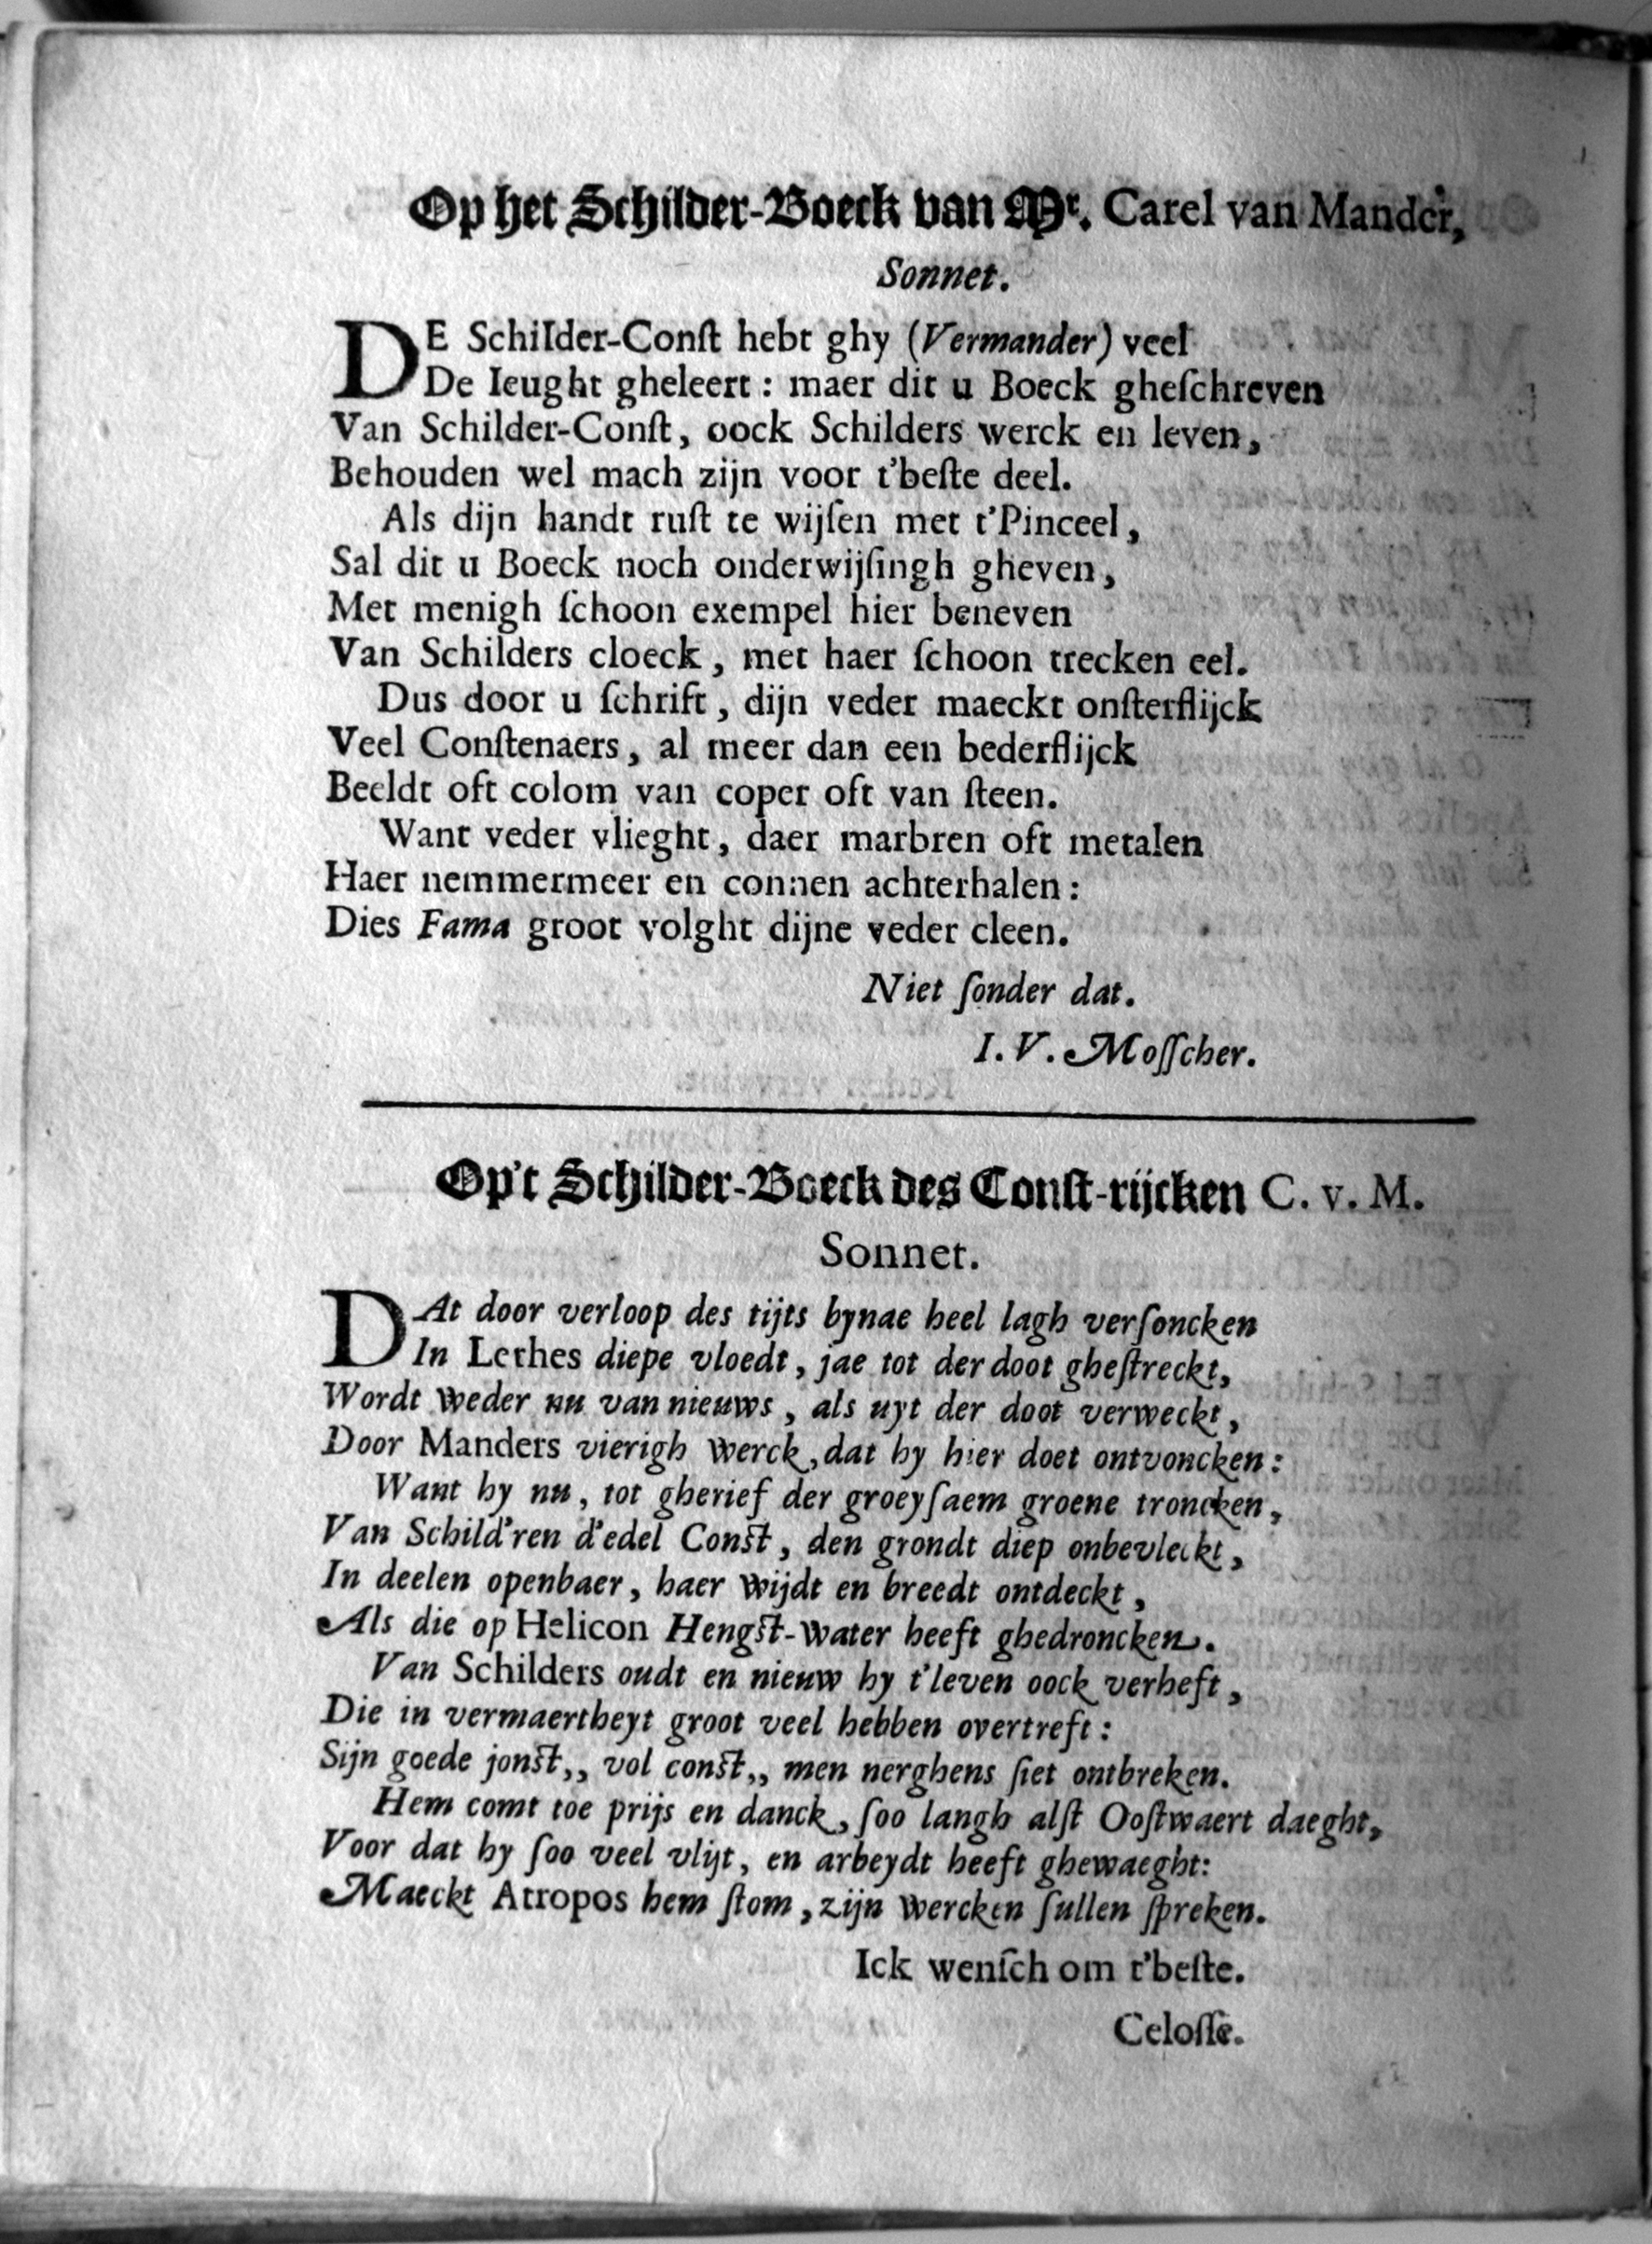 Op het Schilder-Boeck van Mr. Carel van Mander,
Sonnet.
DE Schilder-Conſt hebt ghy (Vermander) veel
De Ieught gheleert : maer dit u Boeck gheſchreven
Van Schilder-Conſt, oock Schilders werck en leven,
Behouden wel mach zijn voor t'beſte deel.
Als dijn handt ruſt te wijſen met t'Pinceel,
Sal dit u Boeck noch onderwijſingh gheven,
Met menigh ſchoon exempel hier beneven
Van Schilders cloeck, met haer ſchoon trecken eel.
Dus door u ſchrift, dijn veder maeckt onſterflijck
Veel Conſtenaers, al meer dan een bederflijck
Beeldt oft colom van coper oft van ſteen.
Want veder vlieght, daer marbren oft metalen
Haer nemmermeer en connen achterhalen :
Dies Fama groot volght dijne veder cleen.
Niet ſonder dat.
I. V. Moſſcher.
Op't Schilder-Boeck des Conſt-rijcken C. v. M.
Sonnet.
DAt door verloop des tijts bynae heel lagh verſoncken
In Lethes diepe vloedt, jae tot der doot gheſtreckt,
Wordt weder nu van nieuws, als uyt der doot verweckt,
Door Manders vierigh werck, dat hy hier doet ontvoncken :
Want hy nu, tot gherief der groeyſaem groene troncken,
Van Schild'ren d'edel Conſt, den grondt diep onbevleckt,
In deelen openbaer, haer wijdt en breedt ontdeckt,
Als die op Helicon Hengſt-water heeft ghedroncken.
Van Schilders oudt en nieuw hy t'leven oock verheft,
Die in vermaertheyt groot veel hebben overtreft :
Sijn goede jonſt,, vol conſt,, men nerghens ſiet ontbreken.
Hem comt toe prijs en danck, ſoo langh alſt Ooſtwaert daeght,
Voor dat hy ſoo veel vlijt, en arbeydt heeft ghewaeght:
Maeckt Atropos hem ſtom, zijn wercken ſullen ſpreken.
Ick wenſch om t'beſte.
Celoſſe.